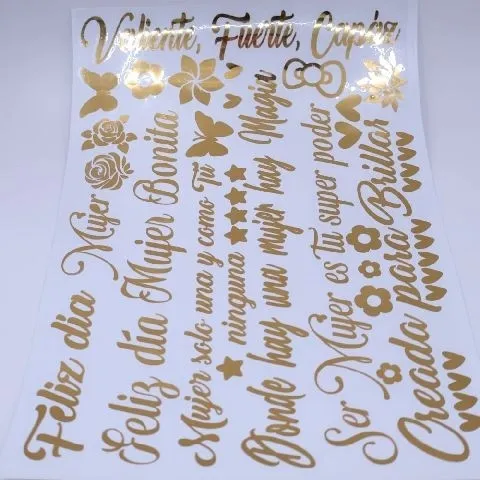 Valiente, Fuerte, Capáz
Feliz día Mujer
Feliz día Mujer Bonita
Mujer solo una y como Tú
ninguna
Donde hay una mujer hay Magia
Ser Mujer es Tu super poder
Creada para Brillar